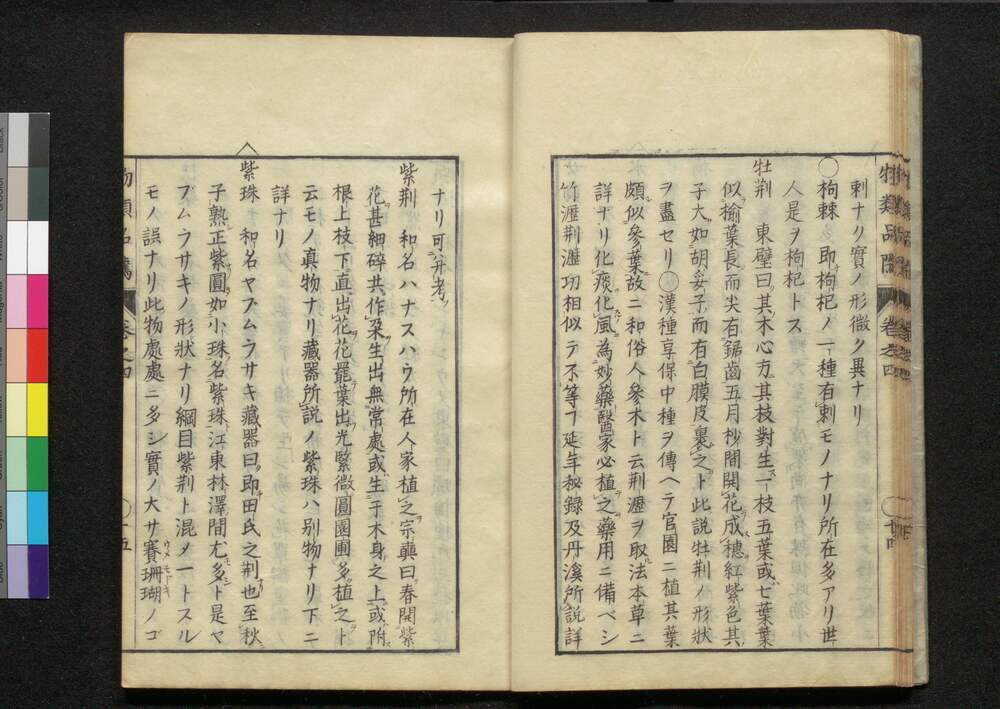 刺ナリ實ノ形微ク異ナリ
○枸棘 即枸杞ノ一種有刺モノナリ所在多アリ世
人是ヲ枸杞トス
牡荆 東壁曰其木心方其枝對生一枝五葉或七葉葉
似榆葉長而尖有鋸齒五月杪間開花成穗紅紫色其
子大如胡荽子而有白膜皮裹之ト此説牡荆ノ形狀
ヲ盡セリ○漢種享保中種ヲ傳ヘテ官園ニ植其葉
頗似參葉故ニ和俗人參木ト云荆瀝ヲ取法本草ニ
詳ナリ化痰化風為妙藥醫家必植之藥用ニ備ベシ
竹瀝荆瀝功相似テ不等フ延年秘録及丹溪所説詳
ナリ可并考
紫荆 和名ハナスハウ所在人家植之宗奭曰春開紫
花甚細碎共作朶生出無常處或生于木身之上或附
根上枝下直出花花罷葉出光緊微圓園圃多植之ト
云モノ真物ナリ藏器所説ノ紫珠ハ別物ナリ下ニ
詳ナリ
紫珠 和名ヤブムラサキ藏器曰即田氏之荆也至秋
子熟正紫圓如小珠名紫珠江東林澤間尤多ト是ヤ
ブムラサキノ形狀ナリ綱目紫荆ト混メ一トスル
モノ誤ナリ此物處處ニ多シ實ノ大サ賽珊瑚ノゴ